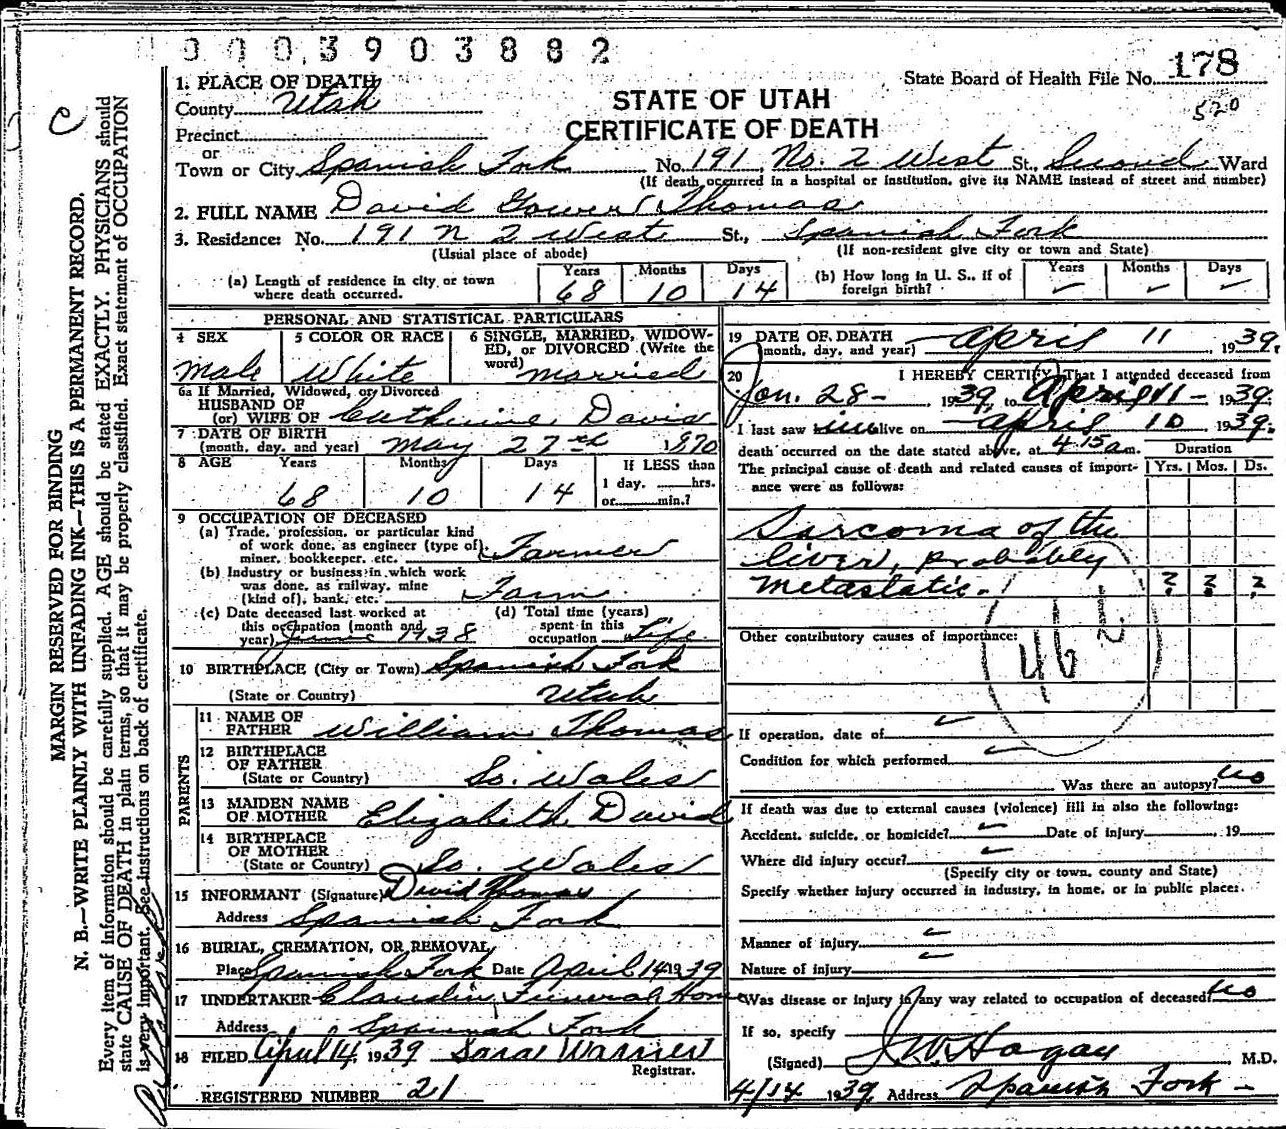 0003903882
1. PLACE OF DEATH
State Board of Health File No. 178
County Utah
STATE OF UTAH
520
Precinct
CERTIFICATE OF DEATH
or
Town or City Spanish Fork No. 191 No. 2 West St., Second Ward
(If death occurred in a hospital or institution, give its NAME instead of street and number)
2. FULL NAME David Gower Thomas
3. Residence: No. 191 N 2 West St., Spanish Fork
(Usual place of abode) (If non-resident give city or town and State)
(a) Length of residence in city or town where death occurred. Years 68 Months 10 Days 14
(b) How long in U. S., if of foreign birth? Years – Months – Days –
PERSONAL AND STATISTICAL PARTICULARS
4 SEX Male
5 COLOR OR RACE White
6 SINGLE, MARRIED, WIDOWED, or DIVORCED (Write the word) Married
6a If Married, Widowed, or Divorced
HUSBAND OF
(or) WIFE OF Catherine David
7 DATE OF BIRTH
(month, day, and year) May 27th 1870
8 AGE Years 68 Months 10 Days 14
If LESS than
1 day, hrs.
or min.?
9 OCCUPATION OF DECEASED
(a) Trade, profession, or particular kind
of work done, as engineer (type of)
miner, bookkeeper, etc. Farmer
(b) Industry or business in which work
was done, as railway, mine
(kind of), bank, etc. Farm
(c) Date deceased last worked at
this occupation (month and
year) June 1938
(d) Total time (years)
spent in this
occupation Life
10 BIRTHPLACE (City or Town) Spanish Fork
(State or Country) Utah
PARENTS
11 NAME OF
FATHER William Thomas
12 BIRTHPLACE
OF FATHER
(State or Country) So. Wales
13 MAIDEN NAME
OF MOTHER Elizabeth David
14 BIRTHPLACE
OF MOTHER
(State or Country) So. Wales
15 INFORMANT (Signature) David Thomas
Address Spanish Fork
16 BURIAL, CREMATION, OR REMOVAL
Place Spanish Fork Date April 14 1939
17 UNDERTAKER Claudin Funeral Home
Address Spanish Fork
18 FILED April 14, 1939 Sarae
Registrar.
REGISTERED NUMBER 21
19 DATE OF DEATH
(month, day, and year) April 11 1939.
20 I HEREBY CERTIFY, That I attended deceased from
Jan. 28 - 1939, to April 11 - 1939.
I last saw alive on April 10 1939.
death occurred on the date stated above, at 4:15 a m.
The principal cause of death and related causes of importance were as follows:
Duration
Yrs. Mos. Ds.
Sarcoma of the
liver, probably
metastatic. ? ? ?
Other contributory causes of importance:
If operation, date of
Condition for which performed
Was there an autopsy? no
If death was due to external causes (violence) fill in also the following:
Accident, suicide, or homicide? Date of injury , 19
Where did injury occur?
(Specify city or town, county and State)
Specify whether injury occurred in industry, in home, or in public place:
Manner of injury
Nature of injury
Was disease or injury in any way related to occupation of deceased? no
If so, specify
(Signed) J. W. Hagan M.D.
4/14 1939 Address Spanish Fork -
MARGIN RESERVED FOR BINDING
N. B.—WRITE PLAINLY WITH UNFADING INK—THIS IS A PERMANENT RECORD.
Every item of information should be carefully supplied. AGE should be stated EXACTLY. PHYSICIANS should
state CAUSE OF DEATH in plain terms, so that it may be properly classified. Exact statement of OCCUPATION
is very important. See instructions on back of certificate.